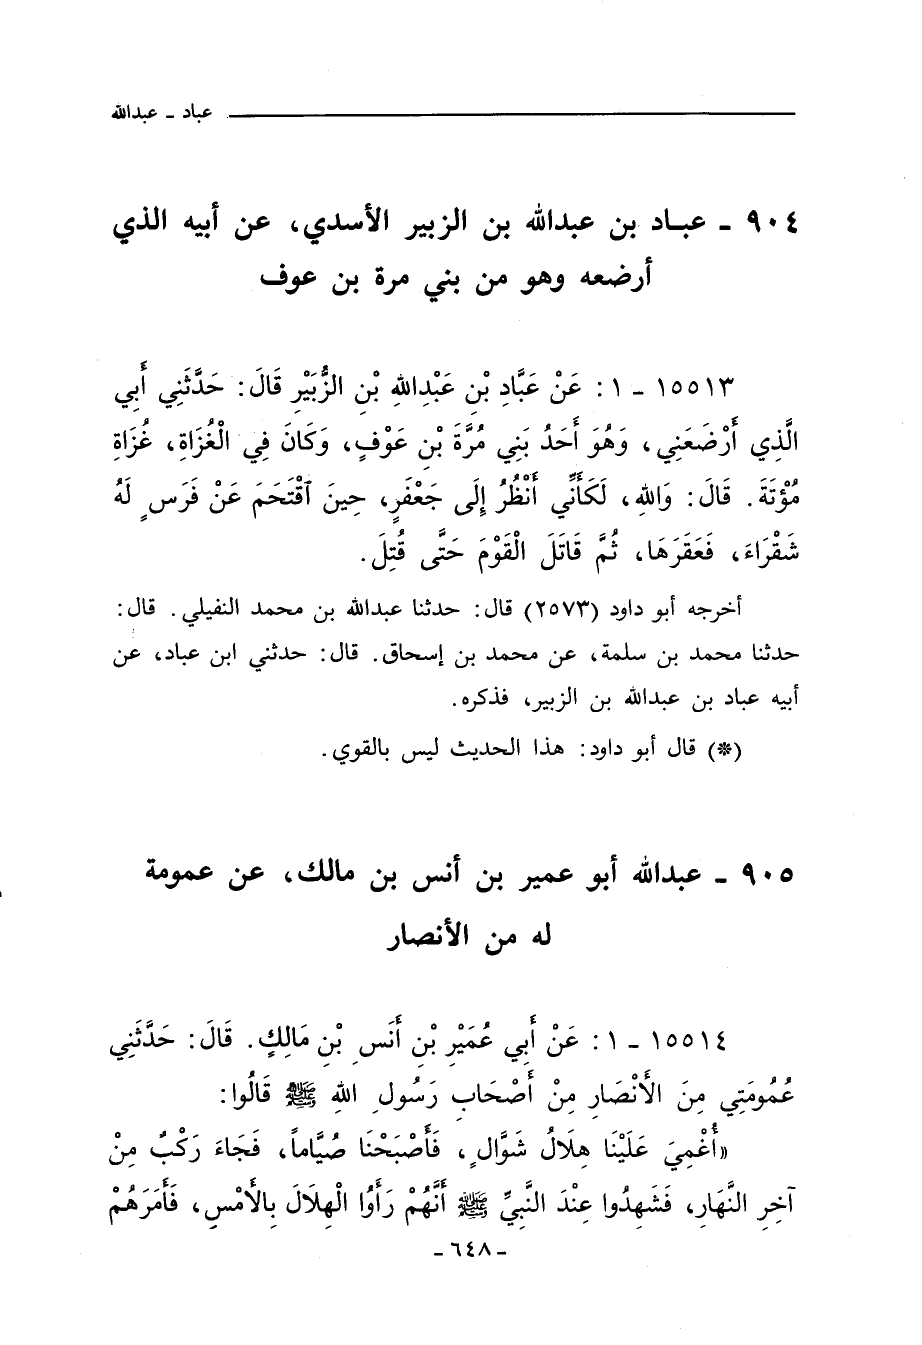 عباد - عبدالله
٩٠٤ - عبـاد بن عبدالله بن الزبير الأسدي، عن أبيه الذي
أرضعه وهو من بني مرة بن عوف
١٥٥١٣ - ١ : عَنْ عَبَّادِ بْنِ عَبْدِاللهِ بْنِ الزُّبَيْرِ قَالَ: حَدَّثَنِي أَبِي
الَّذِي أَرْضَعَنِي، وَهُوَ أَحَدُ بَنِي مُرَّةَ بْنِ عَوْفٍ، وَكَانَ فِي الْغُزَاةِ، غُزَاةِ
مُؤْتَةَ. قَالَ: وَاللهِ، لَكَأَنِّي أَنْظُرُ إِلَى جَعْفَرٍ، حِينَ اَقْتَحَمَ عَنْ فَرَسٍ لَهُ
شَقْرَاءَ، فَعَقَرَهَا، ثُمَّ قَاتَلَ الْقَوْمَ حَتَّى قُتِلَ.
أخرجه أبو داود (٢٥٧٣) قال: حدثنا عبدالله بن محمد النفيلي. قال:
حدثنا محمد بن سلمة، عن محمد بن إسحاق. قال: حدثني ابن عباد، عن
أبيه عباد بن عبدالله بن الزبير، فذكره.
(*) قال أبو داود: هذا الحديث ليس بالقوي.
٩٠٥ - عبدالله أبو عمير بن أنس بن مالك، عن عمومة
له من الأنصار
١٥٥١٤ - ١ : عَنْ أَبِي عُمَيْرِ بْنِ أَنَسِ بْنِ مَالِكٍ. قَالَ: حَدَّثَنِي
عُمُومَتِي مِنَ الأَنْصَارِ مِنْ أَصْحَابِ رَسُولِ اللهِ ﷺ قَالُوا:
«أُغْمِيَ عَلَيْنَا هِلَالُ شَوَّالٍ، فَأَصْبَحْنَا صُيَّاماً، فَجَاءَ رَكْبٌ مِنْ
آخِرِ النَّهَارِ، فَشَهِدُوا عِنْدَ النَّبِيِّ ﷺ أَنَّهُمْ رَأَوُا الْهِلَالَ بِالأَمْسِ، فَأَمَرَهُمْ
- ٦٤٨ -